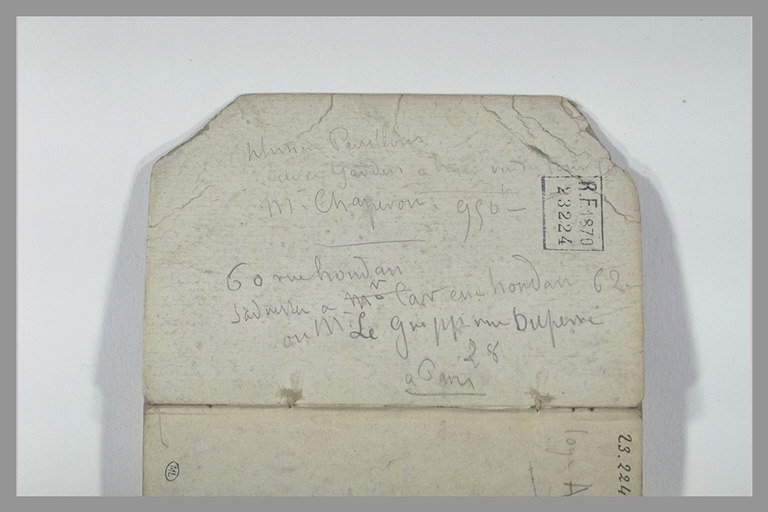 plusieurs Pavillons
avec Jardin a
M. Chaperon. 950 —
60 rue houdan
s'adresser a Mr Cast rue houdan 62
ou M. Le Gripp rue Duperré
28
a Paris
RF 1870
23224
23.224
ML